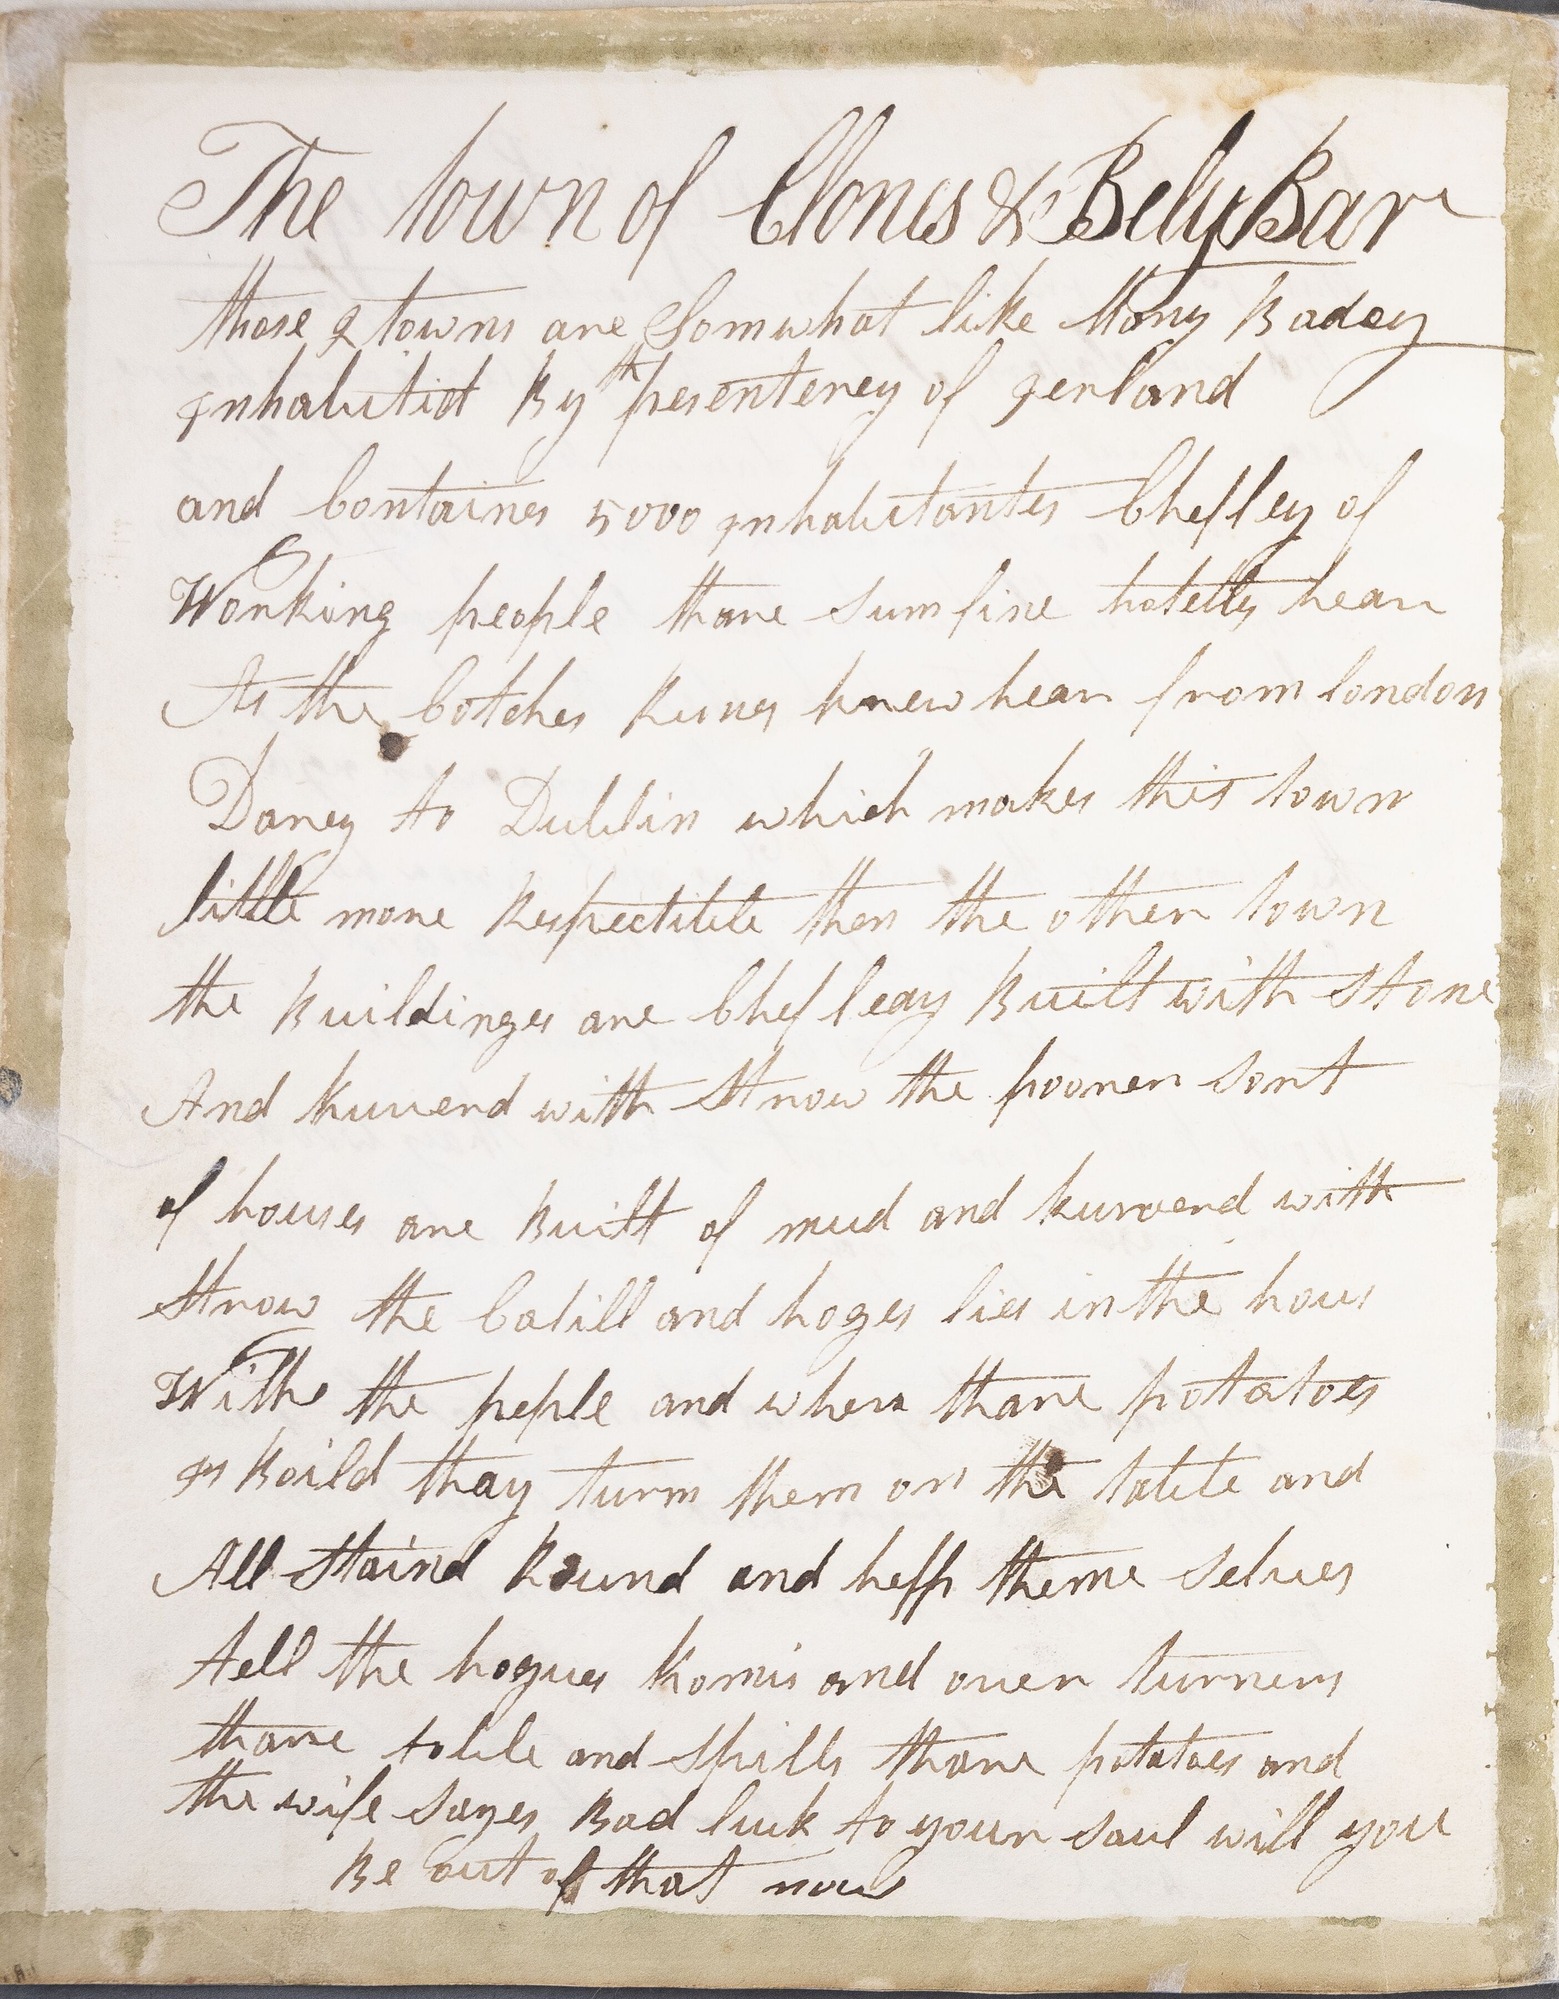 The town of Clones & Bely Bar
those 2 towns are Somwhat like Mony Badey
Inhabitid By th pesenterey of Ierland
and Containes 5000 Inhabitantes Chefley of
Working people thare sum fine hotells hear
As the Cotches Runes threw hear from london
Darey to Dublin which makes this town
little more Respectible then the other town
the Buildinges are Chefleay Built with stone
And kuverd with Straw the poorer sort
of houses are Built of mud and kuverd with
Straw the Catill and hoges lies in the hous
Withe the peple and when thare potatoes
Is Boild thay turm them on the table and
All Staind Round and helfp theme selves
tell the hogues komis and over turners
thare table and Spills thare potatoes and
the wife sayes Bad luck to your saul will you
Be out of that now